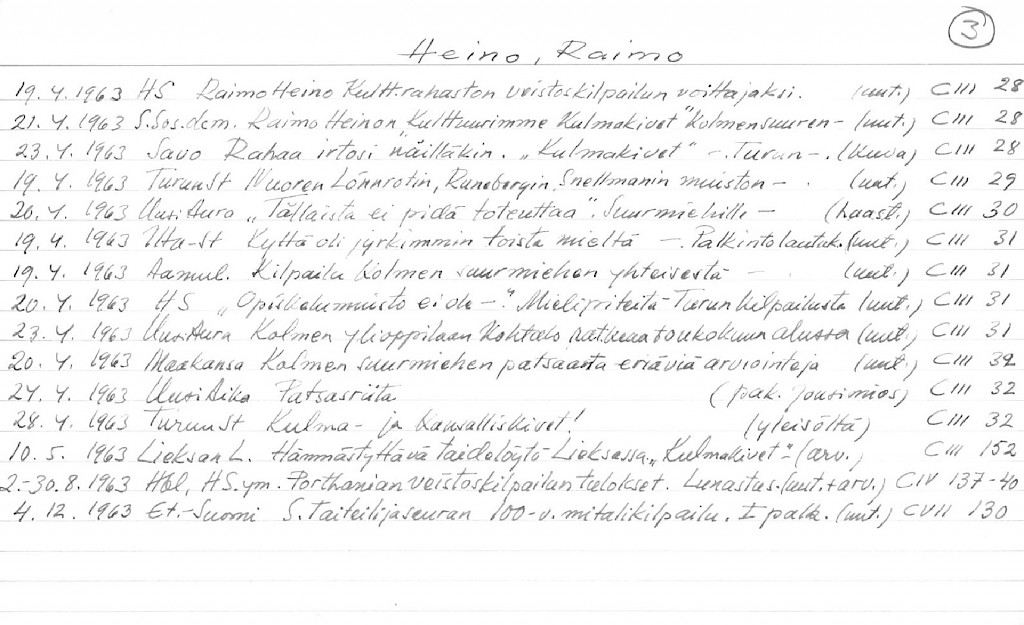 3
Heino, Raimo
19.4.1963 HS Raimo Heino Kultt.rahaston veistoskilpailun voittajaksi. (uut.) CIII 28
21.4.1963 S.Sos.dem. Raimo Heinon „Kulttuurimme Kulmakivet" kolmensuuren- (uut.) CIII 28
23.4.1963 Savo Rahaa irtosi näilläkin. „Kulmakivet" -. Turun-. (kuva) CIII 28
19.4.1963 TurunSt Nuoren Lönnrotin, Runebergin, Snellmanin muiston- . (uut.) CIII 29
20.4.1963 UusiAura „Tällaista ei pidä toteuttaa". Suurmiehille - (haast.) CIII 30
19.4.1963 Ilta-St Kyttä oli jyrkimmin toista mieltä -. Palkintolautak. (uut.) CIII 31
19.4.1963 Aamul. Kilpailu kolmen suurmiehen yhteisestä - . (uut.) CIII 31
20.4.1963 HS „Opiskelumuisto ei ole -". Mielipiteitä Turun kilpailusta (uut.) CIII 31
23.4.1963 UusiAura Kolmen ylioppilaan kohtalo ratkeaa toukokuun alussa (uut.) CIII 31
20.4.1963 Maakansa Kolmen suurmiehen patsaasta eriäviä arviointeja (uut.) CIII 32
24.4.1963 UusiAika Patsasriita (pak. Jousimies) CIII 32
28.4.1963 TurunSt Kulma- ja kansalliskivet! (yleisöltä) CIII 32
10.5.1963 Lieksan L. Hämmästyttävä taidelöytö Lieksassa. „Kulmakivet"- (arv.) CIII 152
2.-30.8.1963 Hbl, HS.ym. Porthanian veistoskilpailun tulokset. Lunastus. (uut.+arv.) CIV 137-40
4.12.1963 Et.-Suomi S.Taiteilijaseuran 100-v.mitalikilpailu. I palk. (uut.) CVII 130